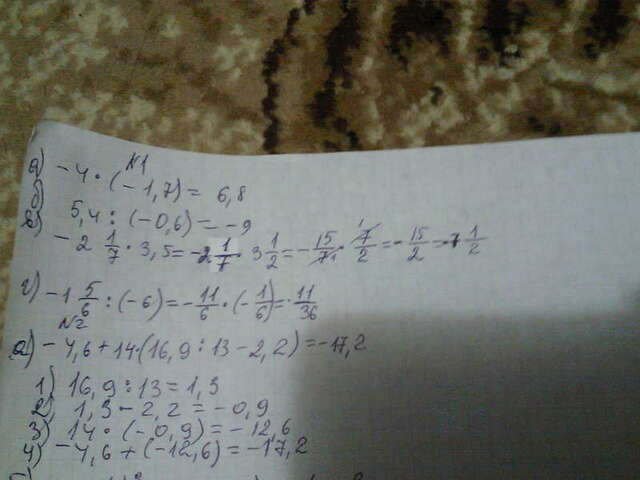 N1
а) -4 · (-1,7) = 6,8
б) 5,4 : (-0,6) = -9
в) -2 1/7 · 3,5 = -2 1/7 · 3 1/2 = -15/7 · 7/2 = -15/2 = -7 1/2
г) -1 5/6 : (-6) = -11/6 · (-1/6) = 11/36
N2
а) -4,6 + 14 · (16,9 : 13 - 2,2) = -17,2
1) 16,9 : 13 = 1,3
2) 1,3 - 2,2 = -0,9
3) 14 · (-0,9) = -12,6
4) -4,6 + (-12,6) = -17,2